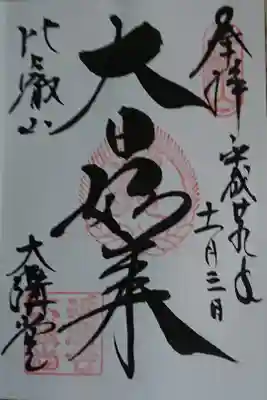 奉拝
平成廿九年
十一月三日
大日如来
比叡山
大講堂